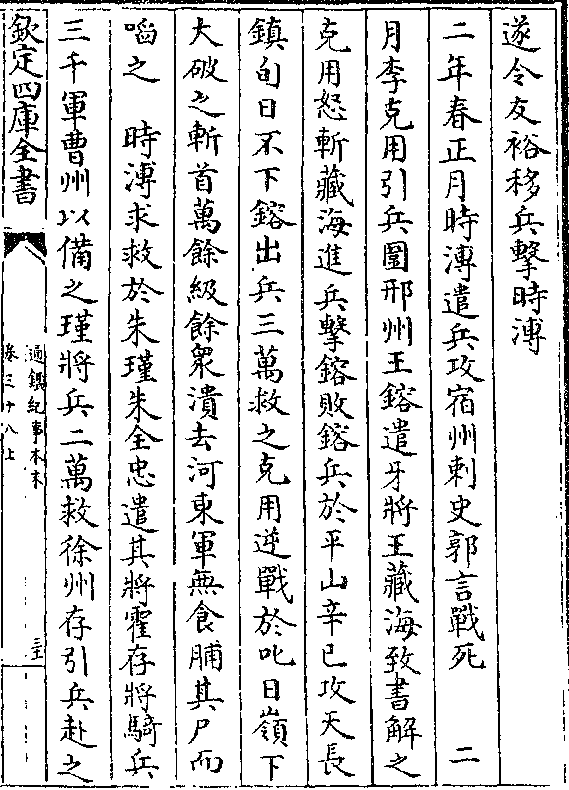 遂令友裕移兵擊時溥
二年春正月時溥遣兵攻宿州刺史郭言戰死　二
月李克用引兵圍邢州王鎔遣牙將王藏海致書解之
克用怒斬藏海進兵擊鎔敗鎔兵於平山辛巳攻天長
鎮旬日不下鎔出兵三萬救之克用逆戰於叱日嶺下
大破之斬首萬餘級餘衆潰去河東軍無食脯其尸而
啗之　時溥求救於朱瑾朱全忠遣其將霍存將騎兵
三千軍曹州以備之瑾將兵二萬救徐州存引兵赴之
欽定四庫全書
通鑑紀事本末
卷三十八上